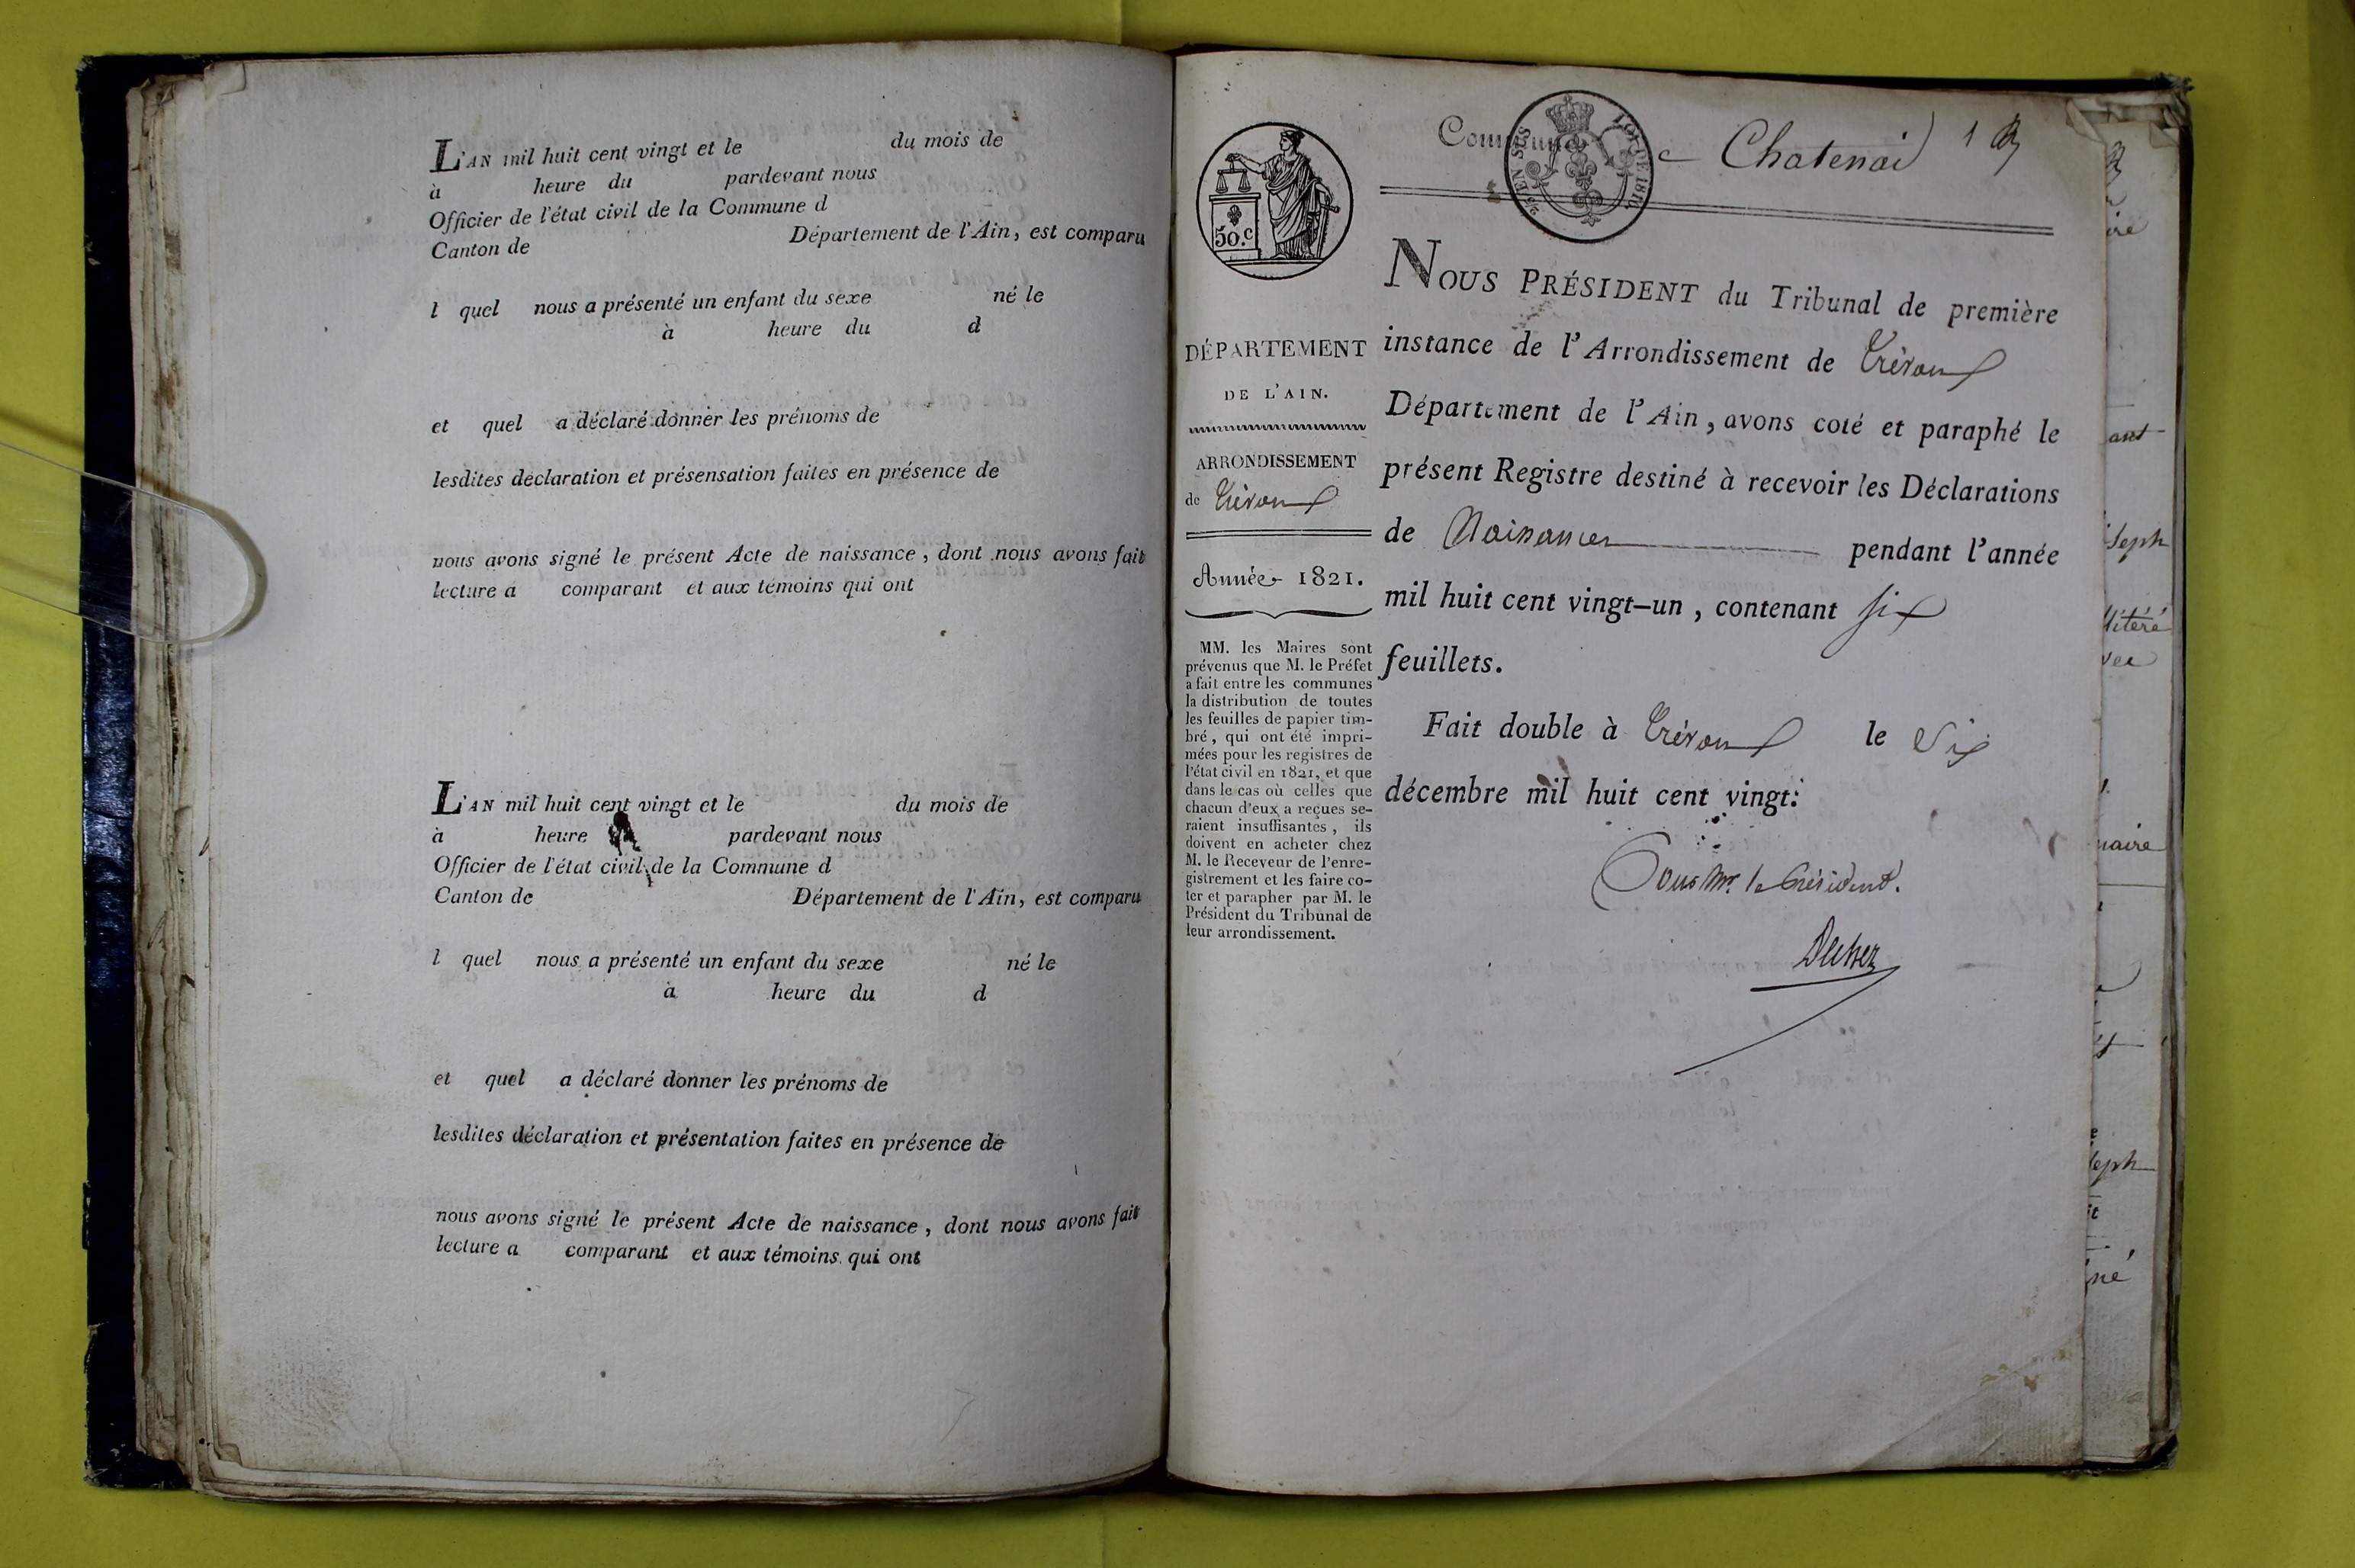 L'AN mil huit cent vingt et le du mois de
à heure du pardevant nous
Officier de l'état civil de la Commune d
Canton de Département de l'Ain, est comparu
l quel nous a présenté un enfant du sexe né le
à heure du d
et quel a déclaré donner les prénoms de
lesdites déclaration et présensation faites en présence de
nous avons signé le présent Acte de naissance, dont nous avons fait
lecture a comparant et aux témoins qui ont
L'AN mil huit cent vingt et le du mois de
à heure pardevant nous
Officier de l'état civil de la Commune d
Canton de Département de l'Ain, est comparu
l quel nous a présenté un enfant du sexe né le
à heure du d
et quel a déclaré donner les prénoms de
lesdites déclaration et présentation faites en présence de
nous avons signé le présent Acte de naissance, dont nous avons fait
lecture a comparant et aux témoins qui ont
50.c
DÉPARTEMENT
DE L'AIN.
ARRONDISSEMENT
de Trévoux
Année 1821.
MM. les Maires sont
prévenus que M. le Préfet
a fait entre les communes
la distribution de toutes
les feuilles de papier tim-
bré, qui ont été impri-
mées pour les registres de
l'état civil en 1821, et que
dans le cas où celles que
chacun d'eux a reçues se-
raient insuffisantes, ils
doivent en acheter chez
M. le Receveur de l'enre-
gistrement et les faire co-
ter et parapher par M. le
Président du Tribunal de
leur arrondissement.
Commune Chatenai 1
LOI DE 1816
EN SUS
NOUS PRÉSIDENT du Tribunal de première
instance de l'Arrondissement de Trévoux
Département de l'Ain, avons coté et paraphé le
présent Registre destiné à recevoir les Déclarations
de Naissances pendant l'année
mil huit cent vingt-un, contenant six
feuillets.
Fait double à Trévoux le Six
décembre mil huit cent vingt:
Pour Mr. le Président.
ant
seph
vee
naire
né